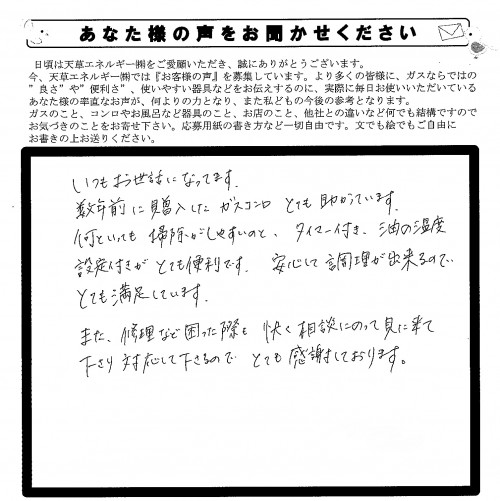 あなた様の声をお聞かせください
日頃は天草エネルギー㈱をご愛顧いただき、誠にありがとうございます。
今、天草エネルギー㈱では『お客様の声』を募集しています。より多くの皆様に、ガスならではの
"良さ"や"便利さ"、使いやすい器具などをお伝えするのに、実際に毎日お使いいただいている
あなた様の率直なお声が、何よりの力となり、また私どもの今後の参考となります。
ガスのこと、コンロやお風呂など器具のこと、お店のこと、他社との違いなど何でも結構ですので
お気づきのことをお寄せ下さい。応募用紙の書き方など一切自由です。文でも絵でもご自由に
お書きの上お送りください。
いつもお世話になってます。
数年前に購入したガスコンロ とても助かっています。
何といっても掃除がしやすいのと、タイマー付き、油の温度
設定付きがとても便利です。安心して調理が出来るので
とても満足しています。
また、修理など困った際も快く相談にのって見に来て
下さり対応して下さるのでとても感謝しております。